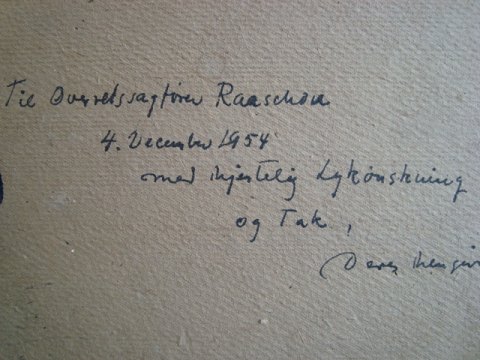 Til Overretssagfører Raaschou
4. December 1954
med hjertelig Lykønskning
og Tak,